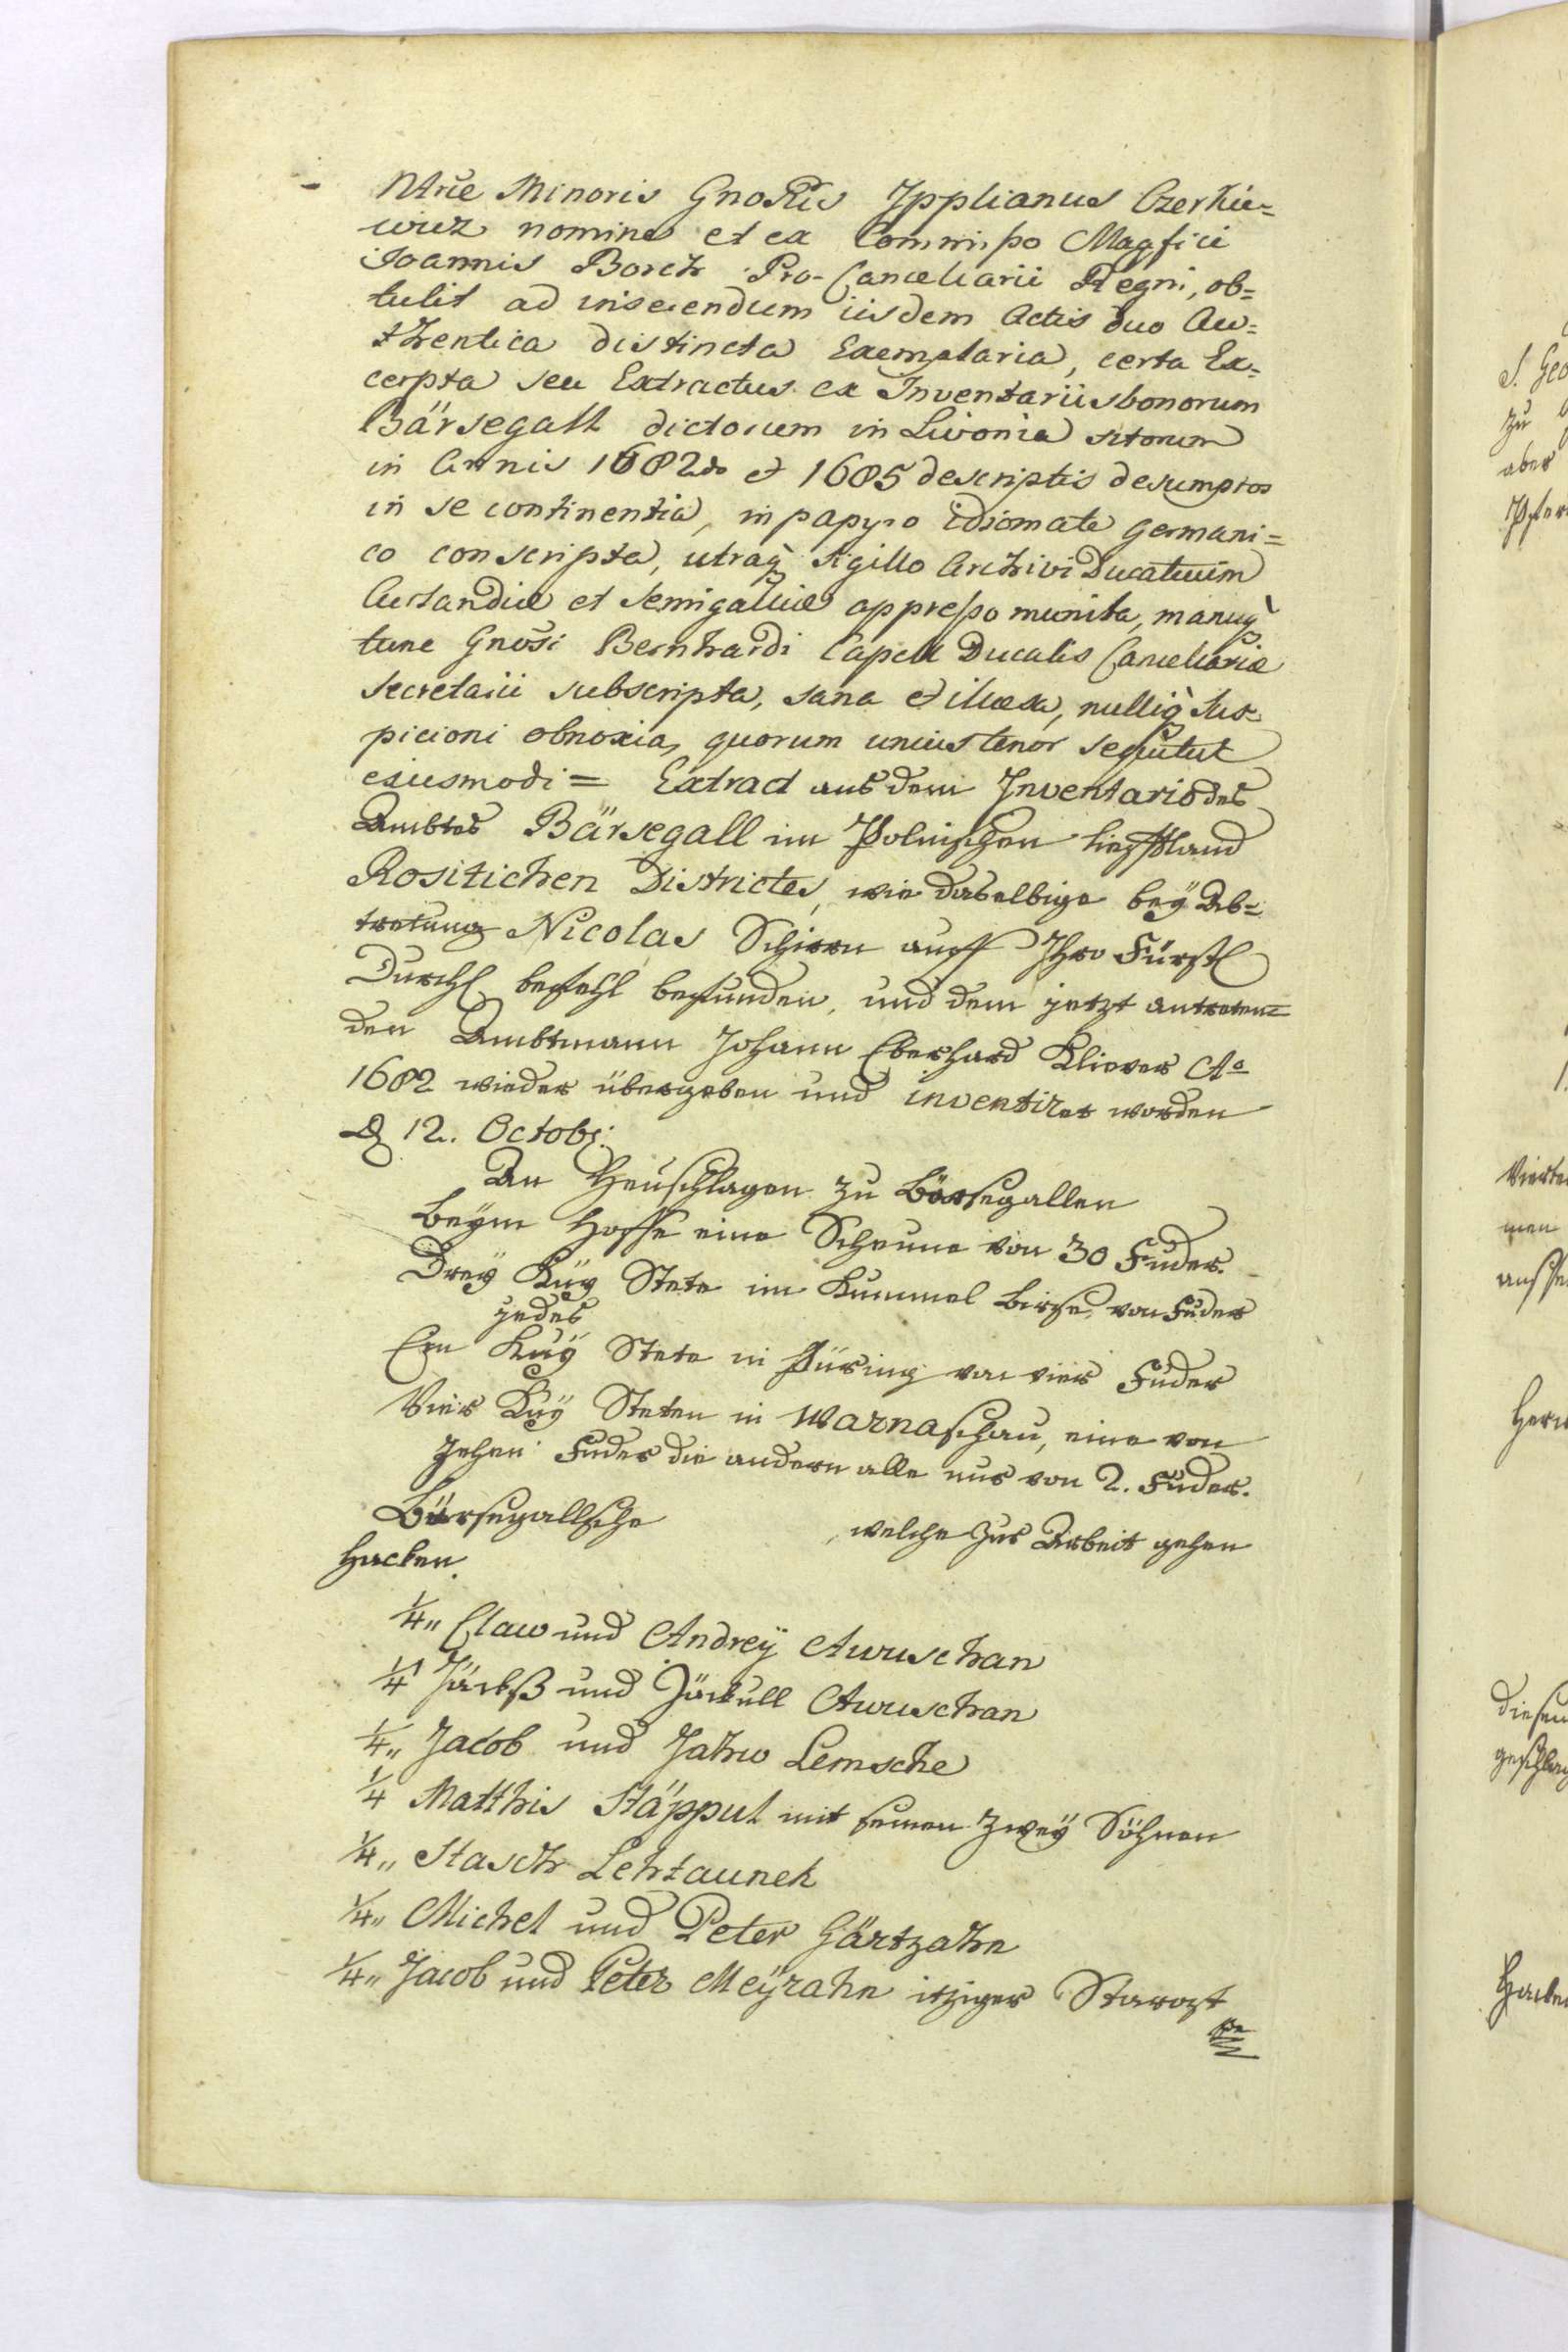 Ntrîe Minoris Gnosus Ipplianus Czerkie=
wicz nomine et ex Commisso Magfici
Joannis Borch Pro-Cancellarii Regni, ob=
tulit ad inserendum iisdem Actis duo Au=
thentica distincta Exemplaria, certa Ex=
cerpta seu Extractus ex Inventariis bonorum
Bärsegall dictorum in Livonia sitorum
in Annis 1682do et 1685 descriptis desumptos
in se continentia, in papyro idiomate germani=
co conscripta, utraq̀ sigillo Archivi Ducatuum
Curlandiæ et Semigalliæ appresso munita, manuq̀
tunc Gnosi Bernhardi Capell Ducalis Cancellariæ
secretarii subscripta, sana et illæsa, nulliq̀ sus=
picioni obnoxia, quorum unius tenor sequitut
ejusmodi = Extract aus dem Inventario des
Ambtes Bärsegall im Polnischen Liefftland
Rositichen Districtes, wie daselbige beÿ Ab=
tretung Nicolas Schirrn auff Ihro Fürstl
Durchl befehl befunden, und dem jetzt antreten=
den Ambtmann Johann Eberhard Kliever Ao
1682 wieder übergeben und inventiret worden
D 12. Octobr:
An Heuschlagen zu Börsegallen
Beÿm Hoffe eine Scheune von 30 Fuder.
Dreÿ Kuÿ Stete im Kummel Birse, von Fuder
jedes
Ein Kuÿ Stete in Püring von vier Fuder
Vier Kuÿ Steten in Warnaschau, eine von
Zehen Fuder die andern alle nur von 2. Fuder.
Börsegallsche welche zur Arbeit gehen
Hacken.
1/4 " Claw und Andreÿ Awuschan
1/4 Jäckß und Jäckull Awuschan
1/4 " Jacob und Jahw Lemsche
1/4 Matthis Stäpput mit seinen zweÿ Söhnen
1/4 " Stasch Lehtaunek
1/4 " Michel und Peter Gärtzahn
1/4 " Jacob und Peter Meÿrahn itziger Starost